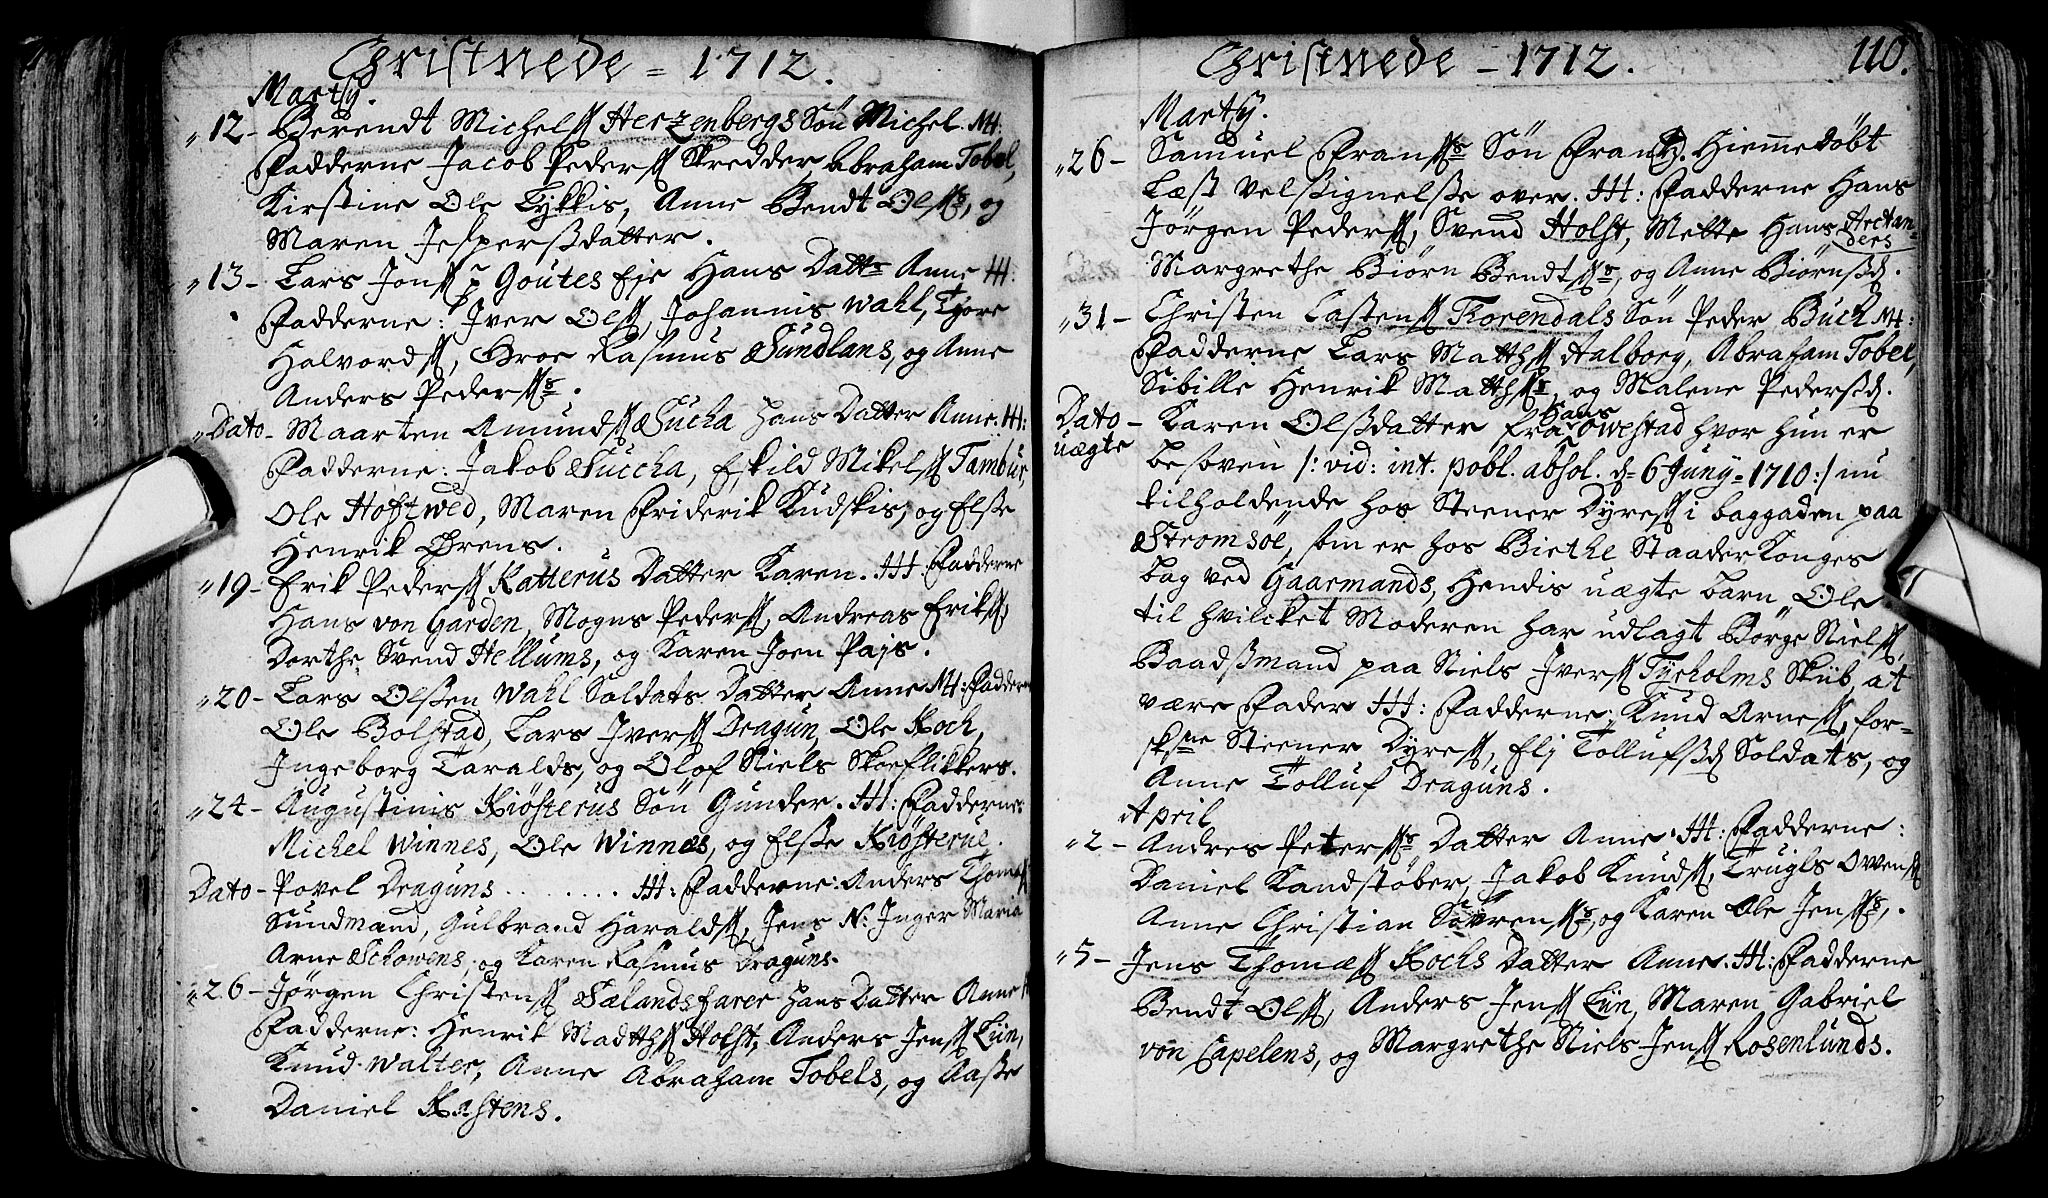 Christnede = 1712.
Martij.
12 - Berendt Michelss Herzenbergs Søn Michel. M:
Fadderne Jacob Pederss Skredder, Abraham Tobel,
Kirstine Ole Lykkis, Anne Bendt Olss, og
Maren Jespersdatter.
13 - Lars Jonss Goutes Eje Hans Dattr Anne H:
Fadderne: Iver Olss, Johannis Wahl, Tore
Halvordss, Broe Rasmus Sundlans, og Anne
Anders Pederss.
Dato - Maarten Amundss Sucha Hans Datter Anne. H:
Fadderne: Jakob Succha, Eskild Mikelss Tambur,
Ole Hoftwed, Maren Friderik Kudskis, og Elsse
Henrik Ørens.
19 - Erik Pederss Katterus Datter Karen. H. Fadderne
Hans von Garden, Mogns Pederss, Andreas Erikss,
Dorthe Svend Hellums, og Karen Joen Pajs.
20 - Lars Olssen Wahl Soldats Datter Anne M: Faddern
Ole Bolstad, Lars Iverss Dragun, Ole Koch,
Ingeborg Taralds, og Olof Niels Skoeflikkers.
24 - Augustinis Kiösterus Søn Gunder. H: Fadderne
Michel Winnes, Ole Winnes, og Elsse Kiösterue.
Dato - Povel Draguns ....... H: Fadderne: Anders Thomass
Sundmand, Gulbrand Haraldss, Jens N: Inger Maria
Arne Schowens, og Karen Rasmus Draguns.
26 - Jörgen Christenss Sælandsfarer Hans Datter Anne
Fadderne: Henrik Madthss Holst, Anders Jenss Liin,
Knud Walter, Anne Abraham Tobels, og Aasse
Daniel Kastens.
Christnede - 1712.
110.
Martij.
26 - Samuel Franss Søn Frantz. Hiemmedöbt
Læst Velssignelsse over. H: Fadderne Hans
Jörgen Pederss, Svend Holst, Mette Hans Arctan
ders
Margrethe Biørn Bendtss, og Anne Biørnssd.
31 - Christen Castenss Thorendals Søn Peder Buch M:
Fadderne Lars Matthss Aalborg, Abraham Tobel,
Sibille Henrik Matthss og Malene Pederssd.
Dato - Karen Olssdatter fra Hans Owestad hvor hun er
uægte
besoven /: vid: int. pobl. absol. d= 6 Junij = 1710 :/ nu
tilholdende hos Steener Dyress i baggaden paa
Stromsöe, som er hos Birthe Staader Konges
bag ved Gaarmands, Hendis uægte barn Ole
til hvilcket Moderen har udlagt Börge Nielss,
Baadssmand paa Niels Iverss Tyrholms Skiib, at
være Fader H: Fadderne: Knud Arness, for-
skne Steener Dyress, Elj Tollufssd Soldats, og
Anne Tolluf Draguns.
April
2 - Andres Peterss Datter Anne. H: Fadderne:
Daniel Kandstöber, Jakob Knudss, Trugls Owenss
Anne Christian Sörenss, og Karen Ole Jenss,.
5 - Jens Thomæss Kochs Datter Anne. H: Fadderne
Bendt Olss, Anders Jenss Liin, Maren Gabriel
von Capelens, og Margrethe Niels Jenss Rosenlunds.